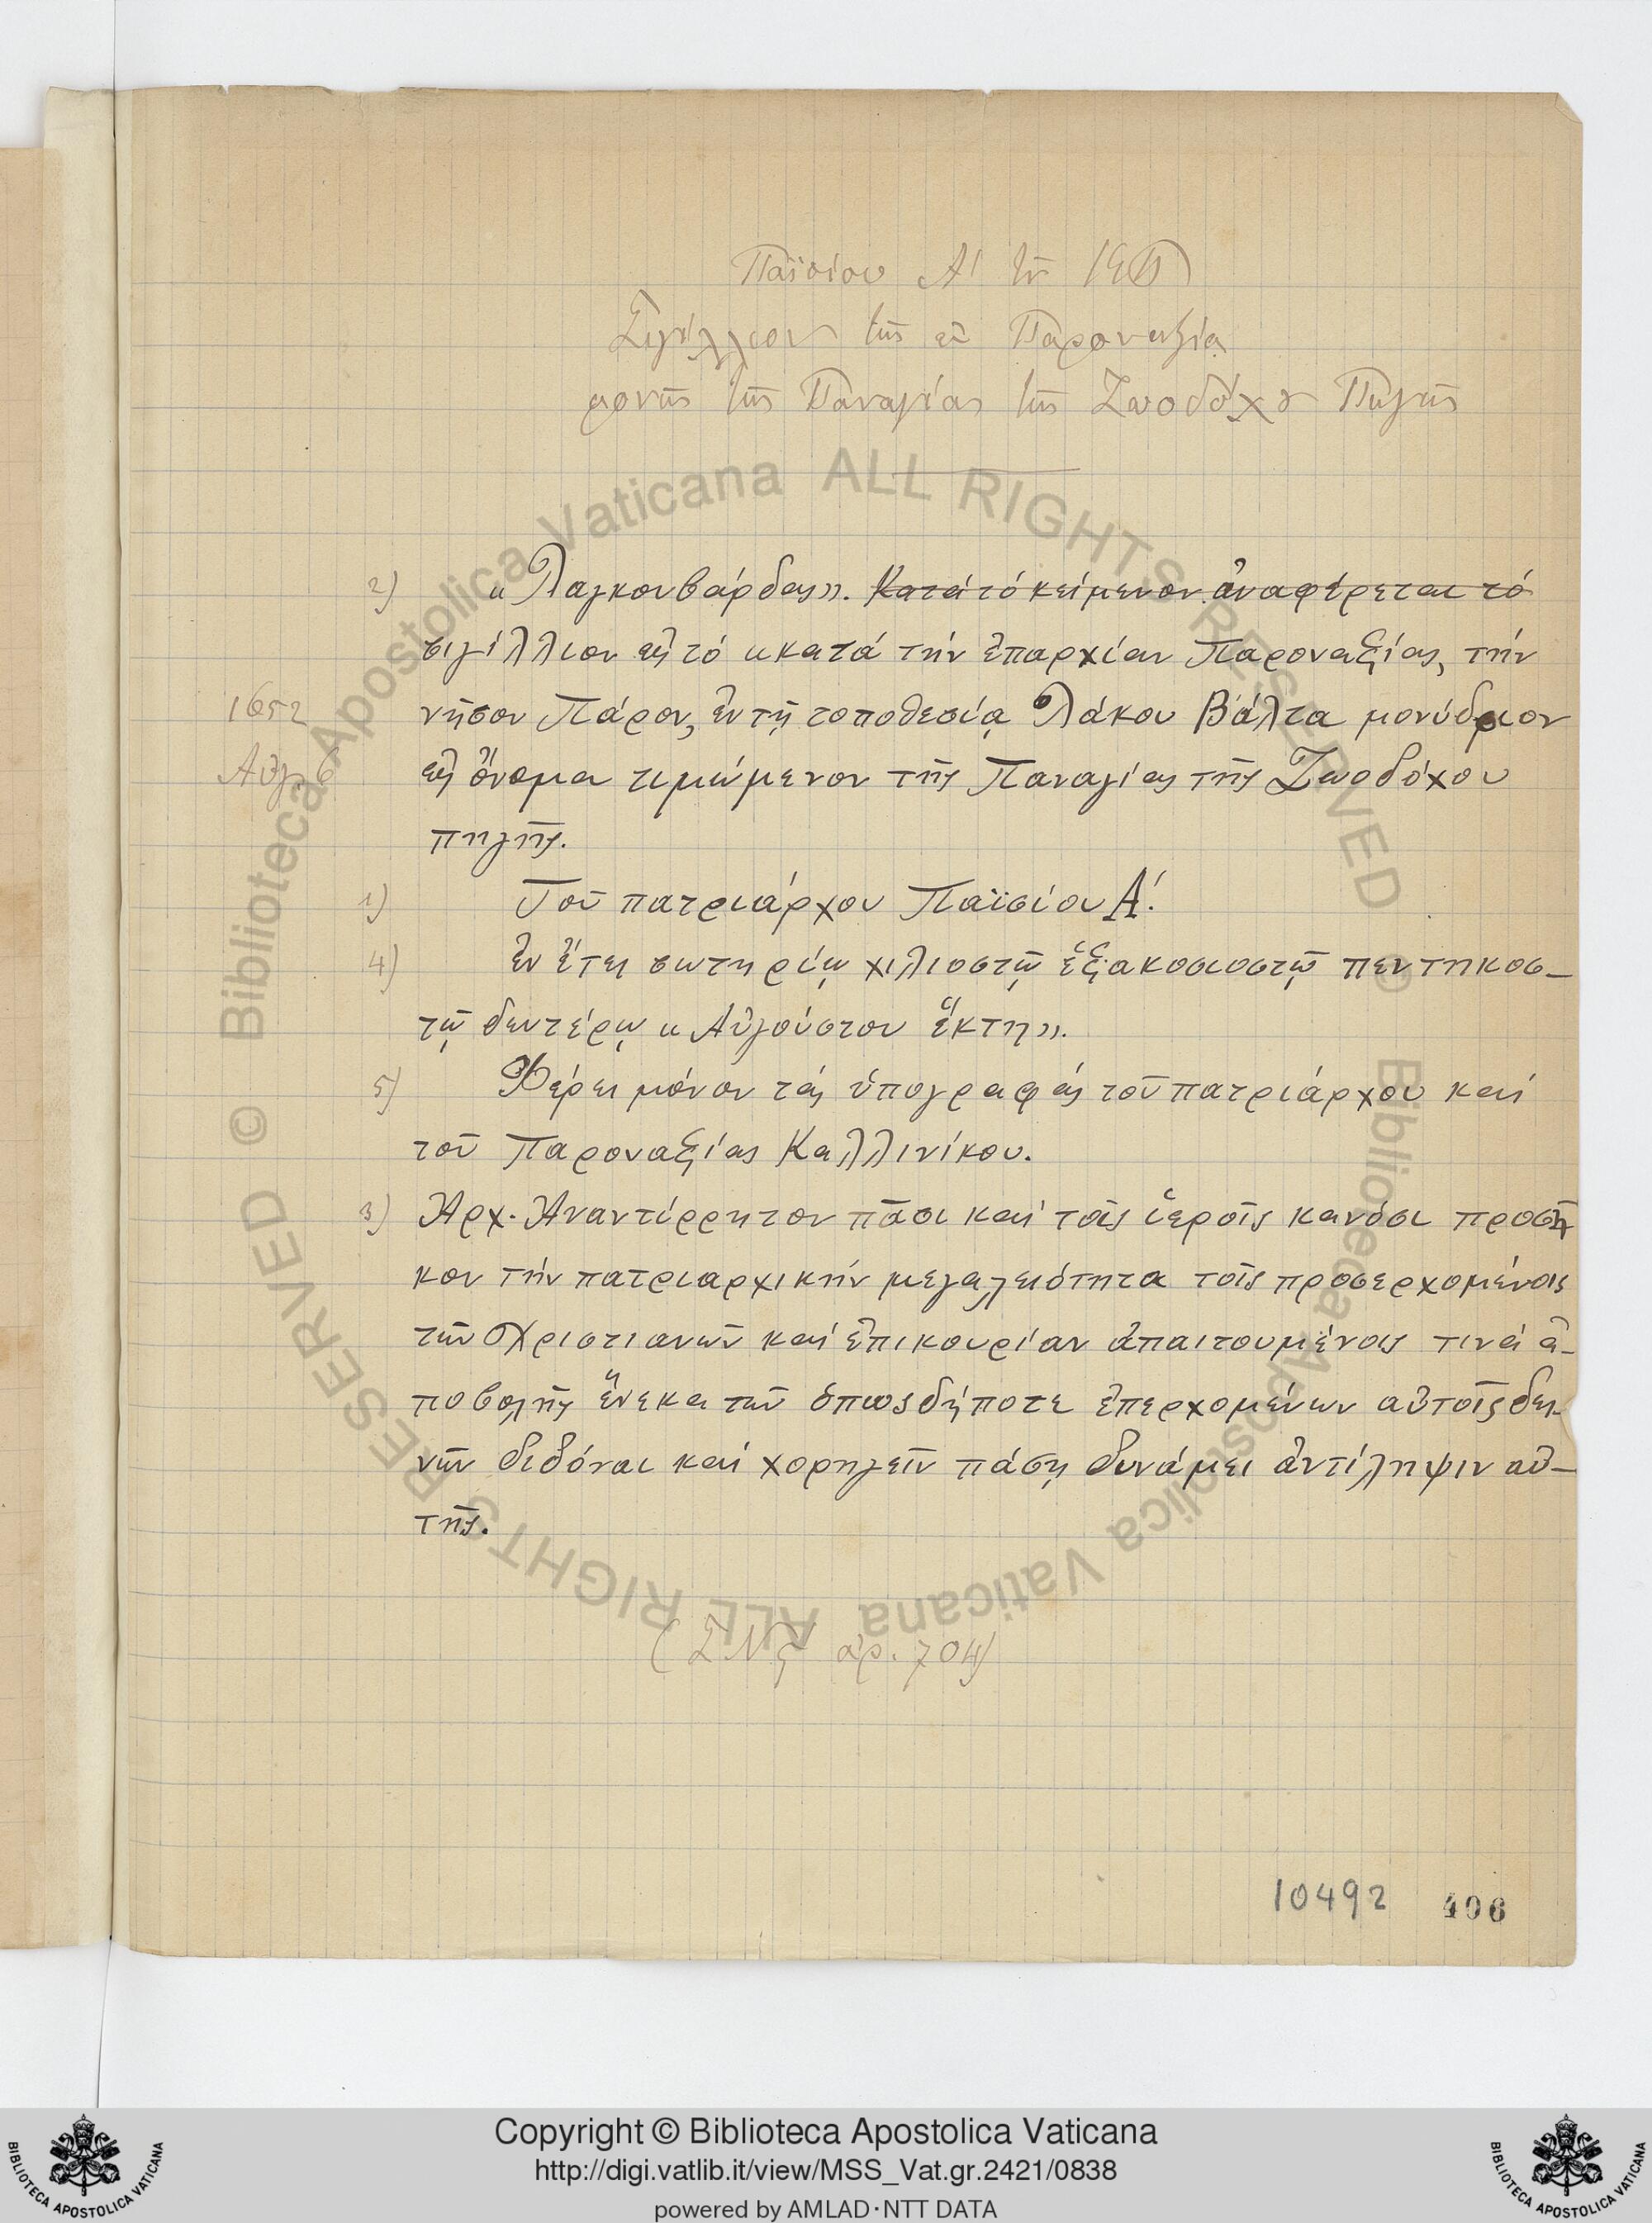 Παϊσίου Α′ τοῦ
Σιγίλλιον τῆς ἐν Παροναξίᾳ
μονῆς τῆς Παναγίας τῆς Ζωοδόχου Πηγῆς
2) «Λαγκουβάρδας». Κατά τό κείμενον ἀναφέρεται τό
σιγίλλιον εἰς τό «κατά τήν ἐπαρχίαν Παροναξίας, τήν
1652 νῆσον Πάρον, ἐν τῇ τοποθεσίᾳ Λάκου Βάλτα μονύδριον
Αὐγ. 6 εἰς ὄνομα τιμώμενον τῆς Παναγίας τῆς Ζωοδόχου
πηγῆς.
1) Τοῦ πατριάρχου Παϊσίου Α΄.
4) Ἐν ἔτει σωτηρίῳ χιλιοστῷ ἑξακοσιοστῷ πεντηκοσ-
τῷ δευτέρῳ «Αὐγούστου ἕκτη».
5) Φέρει μόνον τάς ὑπογραφάς τοῦ πατριάρχου καί
τοῦ Παροναξίας Καλλινίκου.
3) Ἀρχ. Ἀναντίρρητον πᾶσι καί τοῖς ἱεροῖς κανόσι προσῆ
κον τήν πατριαρχικήν μεγαλειότητα τοῖς προσερχομένοις
τῶν Χριστιανῶν καί ἐπικουρίαν ἀπαιτουμένοις τινά ἀ-
ποβολῆς ἕνεκα τῶν ὁπωςδήποτε ἐπερχομένων αὐτοῖς δει-
νῶν διδόναι καί χορηγεῖν πάσῃ δυνάμει ἀντίληψιν αὐ-
τῆς.
ἀρ. 704)
10492 406
© Biblioteca Apostolica Vaticana ALL RIGHTS RESERVED
© Biblioteca Apostolica Vaticana ALL RIGHTS RESERVED
Copyright © Biblioteca Apostolica Vaticana
http://digi.vatlib.it/view/MSS_Vat.gr.2421/0838
powered by AMLAD·NTT DATA
BIBLIOTECA APOSTOLICA VATICANA
BIBLIOTECA APOSTOLICA VATICANA